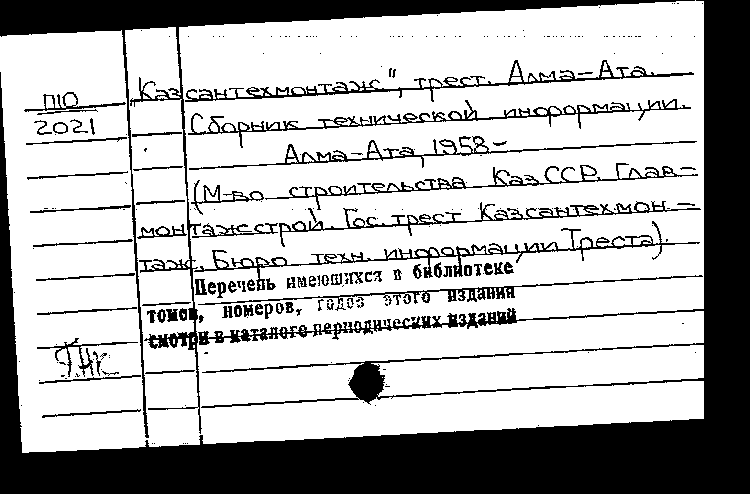 П10
2021
„Казсантехмонтаж", трест. Алма-Ата.
Сборник технической информации.
Алма-Ата, 1958-
(М-во строительства КазССР. Глав-
монтажстрой. Гос. трест Казсантехмон-
таж. Бюро техн. информации Треста).
Перечень имеющихся в библиотеке
томов, номеров, годов этого издания
смотри в каталоге периодических изданий